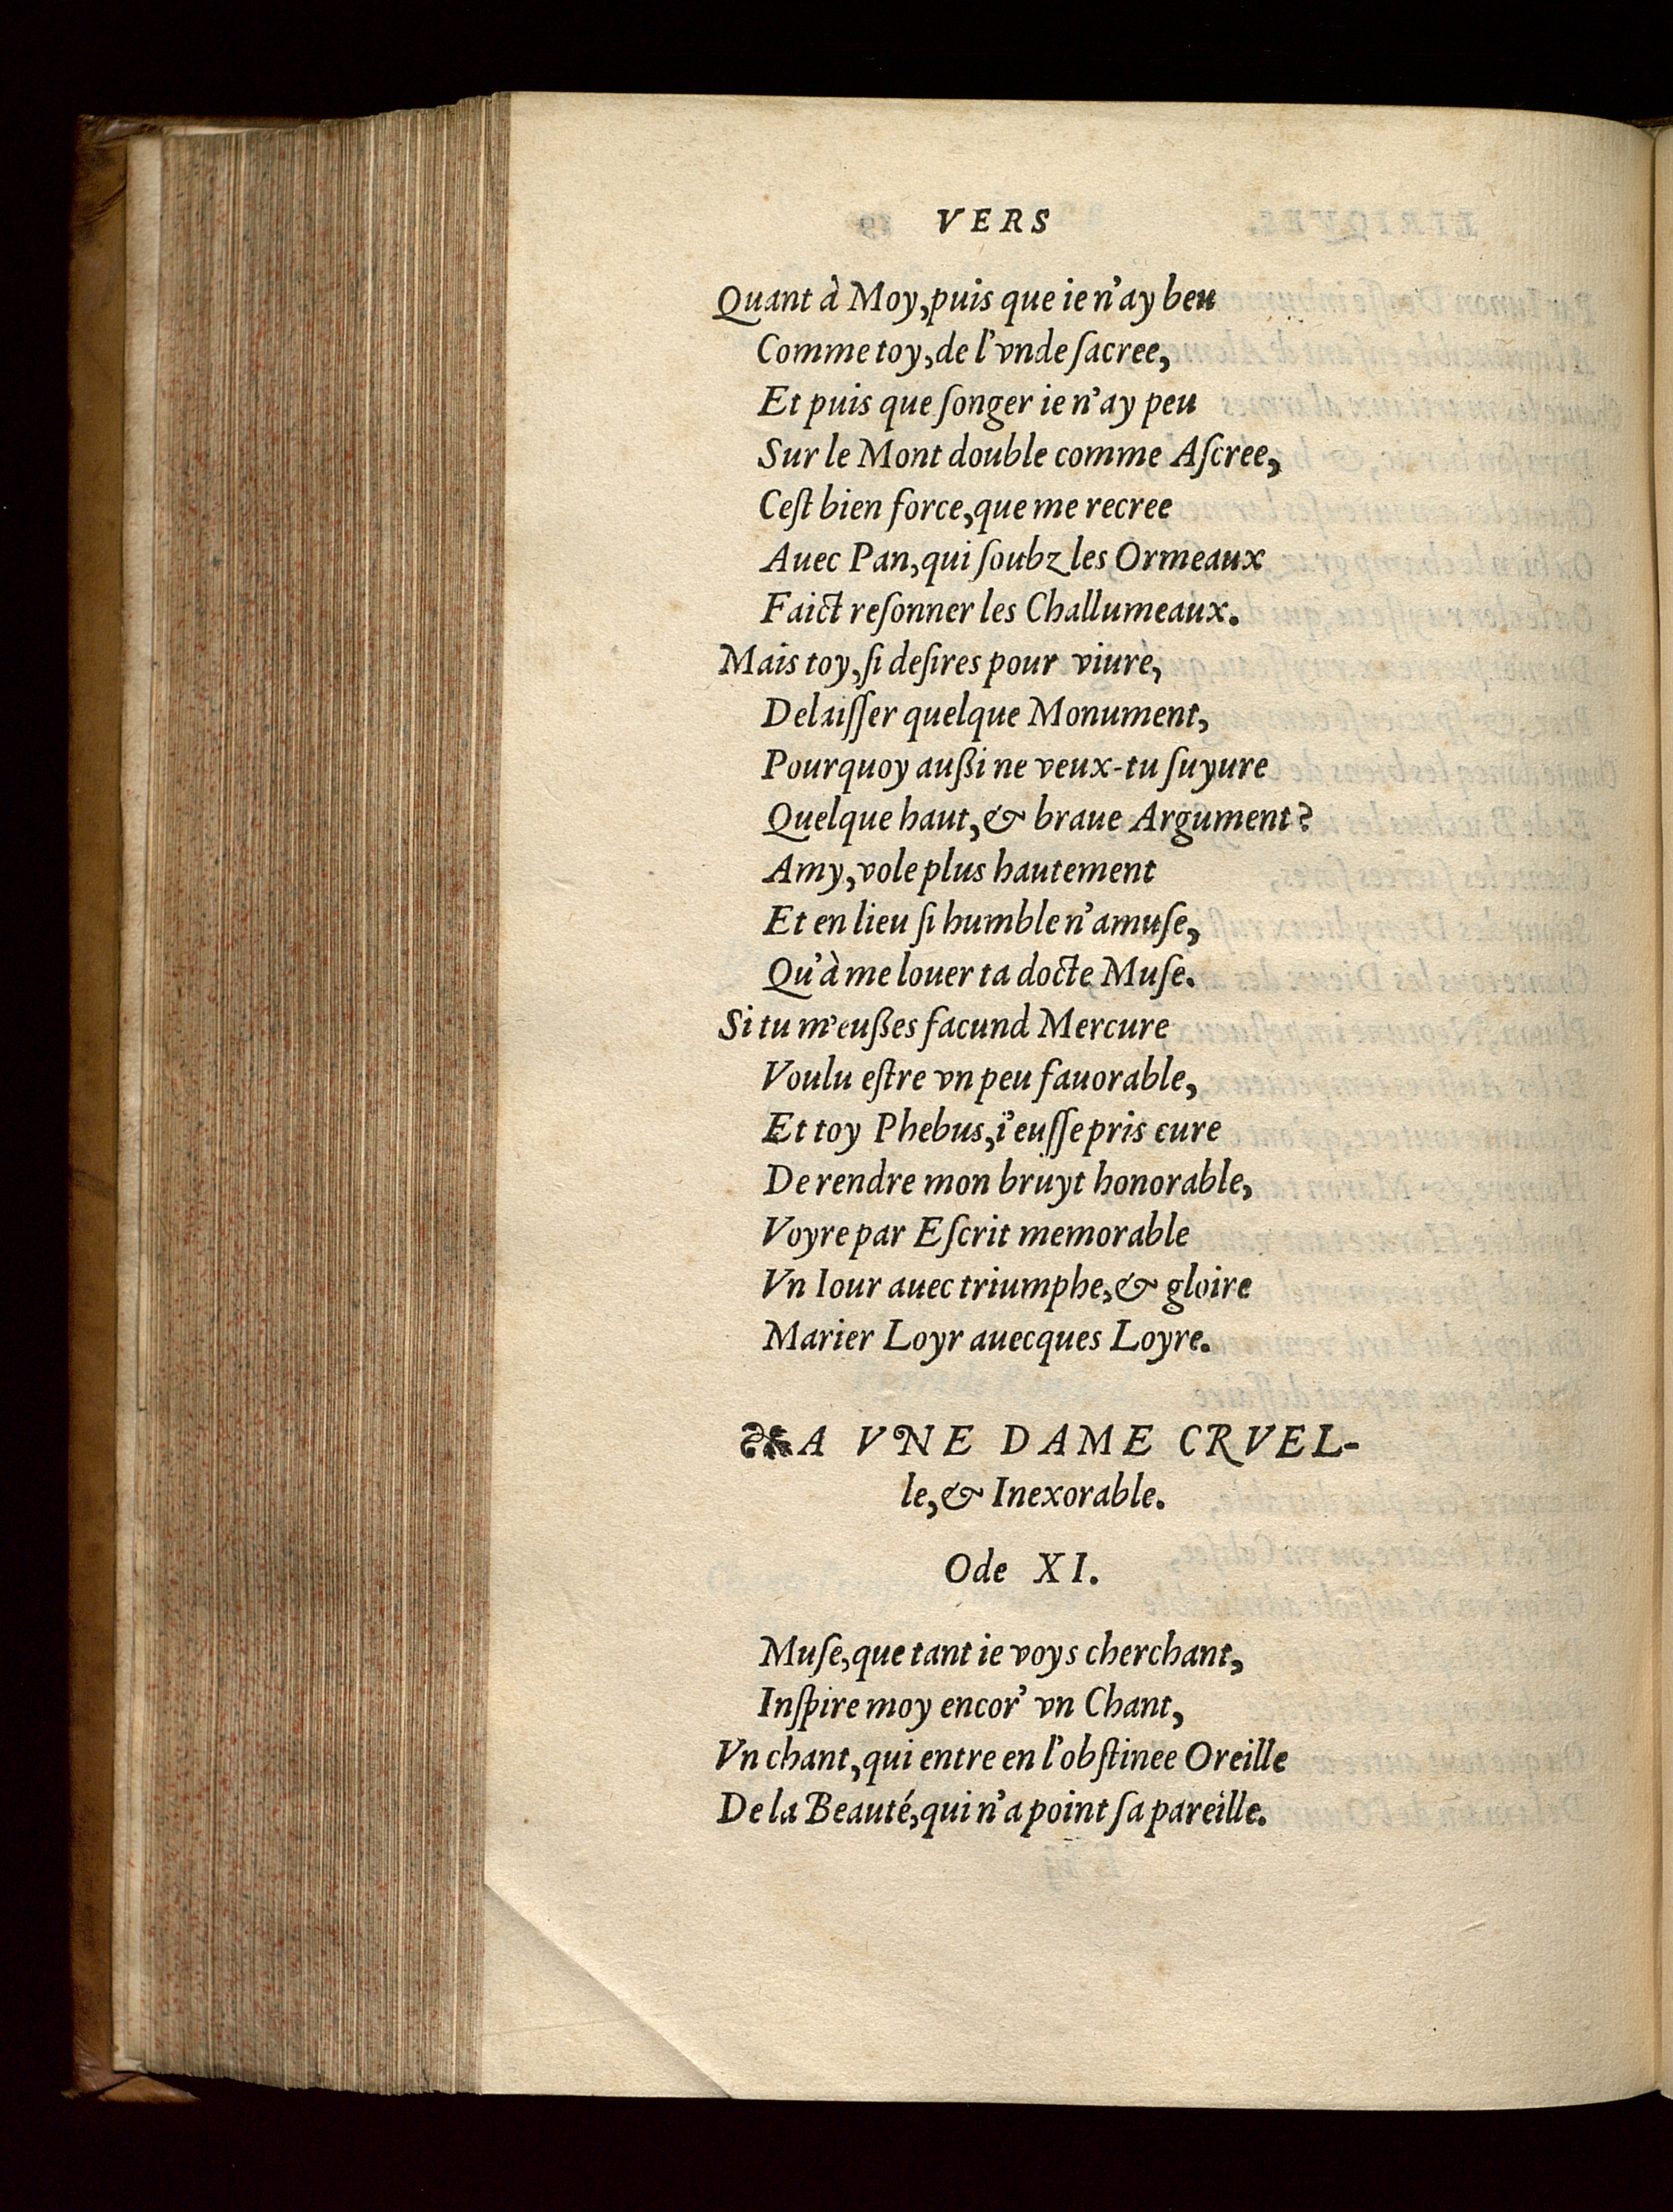 VERS
Quant à Moy, puis que ie n'ay beu
Comme toy, de l'vnde ſacree,
Et puis que ſonger ie n'ay peu
Sur le Mont double comme Aſcree,
Ceſt bien force, que me recree
Auec Pan, qui ſoubz les Ormeaux
Faict reſonner les Challumeaux.
Mais toy, ſi deſires pour viure,
Delaiſſer quelque Monument,
Pourquoy außi ne veux-tu ſuyure
Quelque haut, & braue Argument?
Amy, vole plus hautement
Et en lieu ſi humble n'amuſe,
Qu'à me louer ta docte Muſe.
Si tu m'eußes facund Mercure
Voulu eſtre vn peu fauorable,
Et toy Phebus, i'euſſe pris cure
De rendre mon bruyt honorable,
Voyre par Eſcrit memorable
Vn Iour auec triumphe, & gloire
Marier Loyr auecques Loyre.
❧A VNE DAME CRVEL-
le, & Inexorable.
Ode XI.
Muſe, que tant ie voys cherchant,
Inſpire moy encor' vn Chant,
Vn chant, qui entre en l'obſtinee Oreille
De la Beauté, qui n'a point ſa pareille.